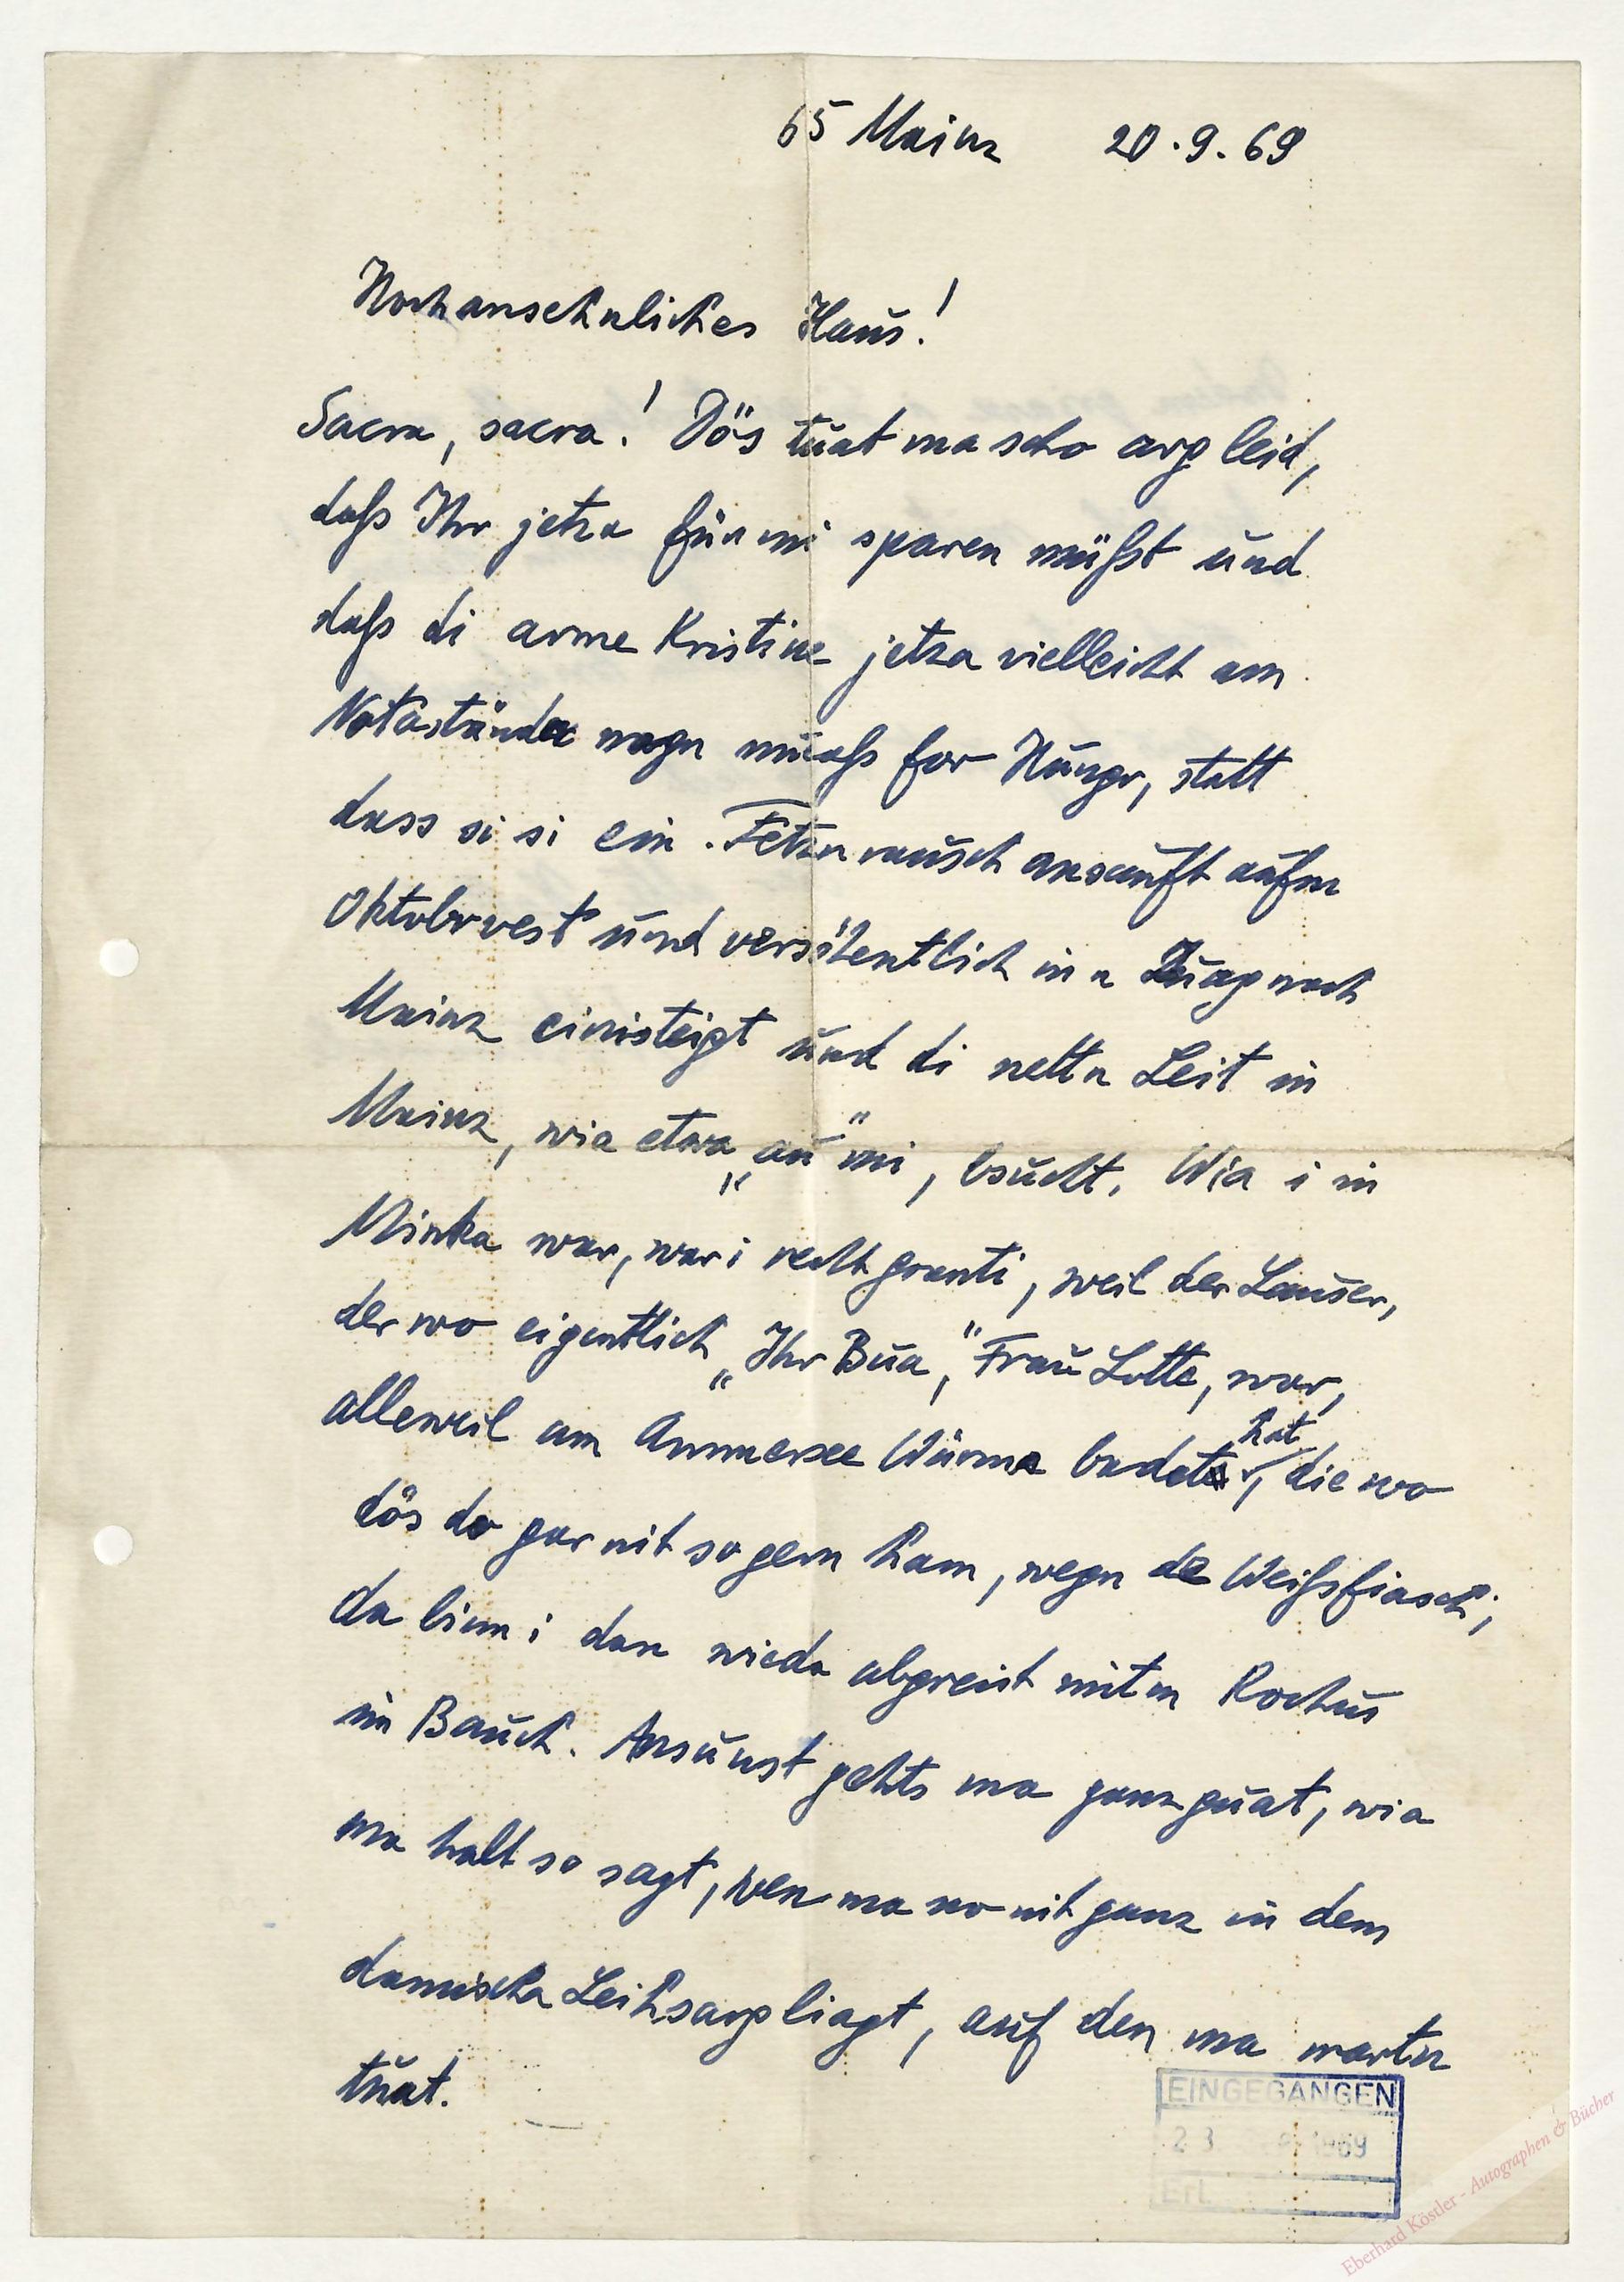 65 Mainz 20.9.69
Hochansehnliches Haus!
Sacra, sacra! Dös tuat ma scho arg leid,
daß Ihr jetza für mi sparen müßt und
daß di arme Kristine jetza vielleicht am
nagn muaß for Hungr, statt
dass si si ein Fetznrausch ansauft aufm
Oktobrvest und versihentlich in n Zuag nach
Mainz einisteigt und di nettn Leit in
Mainz, wia etwa „au" mi, bsucht. Wia i in
Minka war, war i recht granti, weil der Lauser,
der wo eigentlich „Ihr Bua," Frau Lotte, war,
alleweil am Ammersee Würma badet hat, die wo
dös do gar nit so gern ham, wegn de Weißfiasch;
da binn i dan wieda abgreist mitm Rochus
im Bauch. Ansunst gehts ma ganz guat, wia
ma halt so sagt, wen ma no nit ganz in dem
damischa Leihsarg liagt, auf den ma wartn
tuat.
EINGEGANGEN
1969
Erl.
Eberhard Köstler - Autographen & Bücher